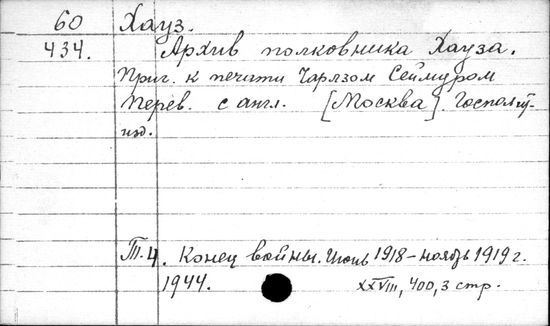 60 Хауз.
434. Архив полковника Хауза.
Приг. к печати Чарлзом Сеймуром
Перев. с англ. [Москва]. Госполит-
изд.
Т.4. Конец войны. Июнь 1918 – ноябрь 1919 г.
1944. XXVIII, 400, 3 стр.